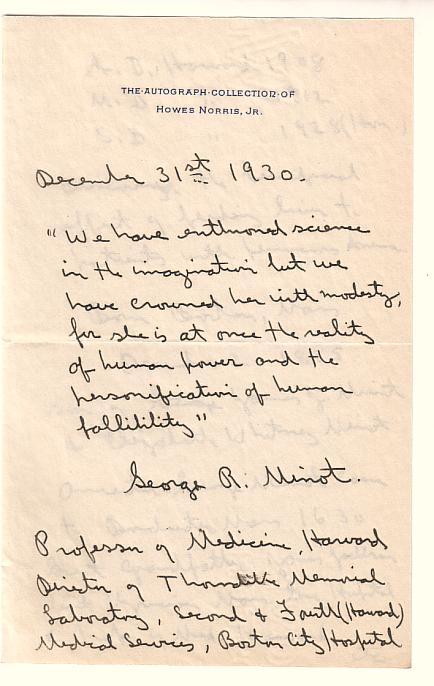 THE·AUTOGRAPH·COLLECTION·OF
HOWES NORRIS, JR.
December 31st 1930.
"We have enthroned science
in the imagination but we
have crowned her with modesty,
for she is at once the reality
of human power and the
personification of human
fallibility"
George R. Minot.
Professor of Medicine, Harvard
Director of Thorndike Memorial
Laboratory, Second & Fourth (Harvard)
Medical Services, Boston City Hospital